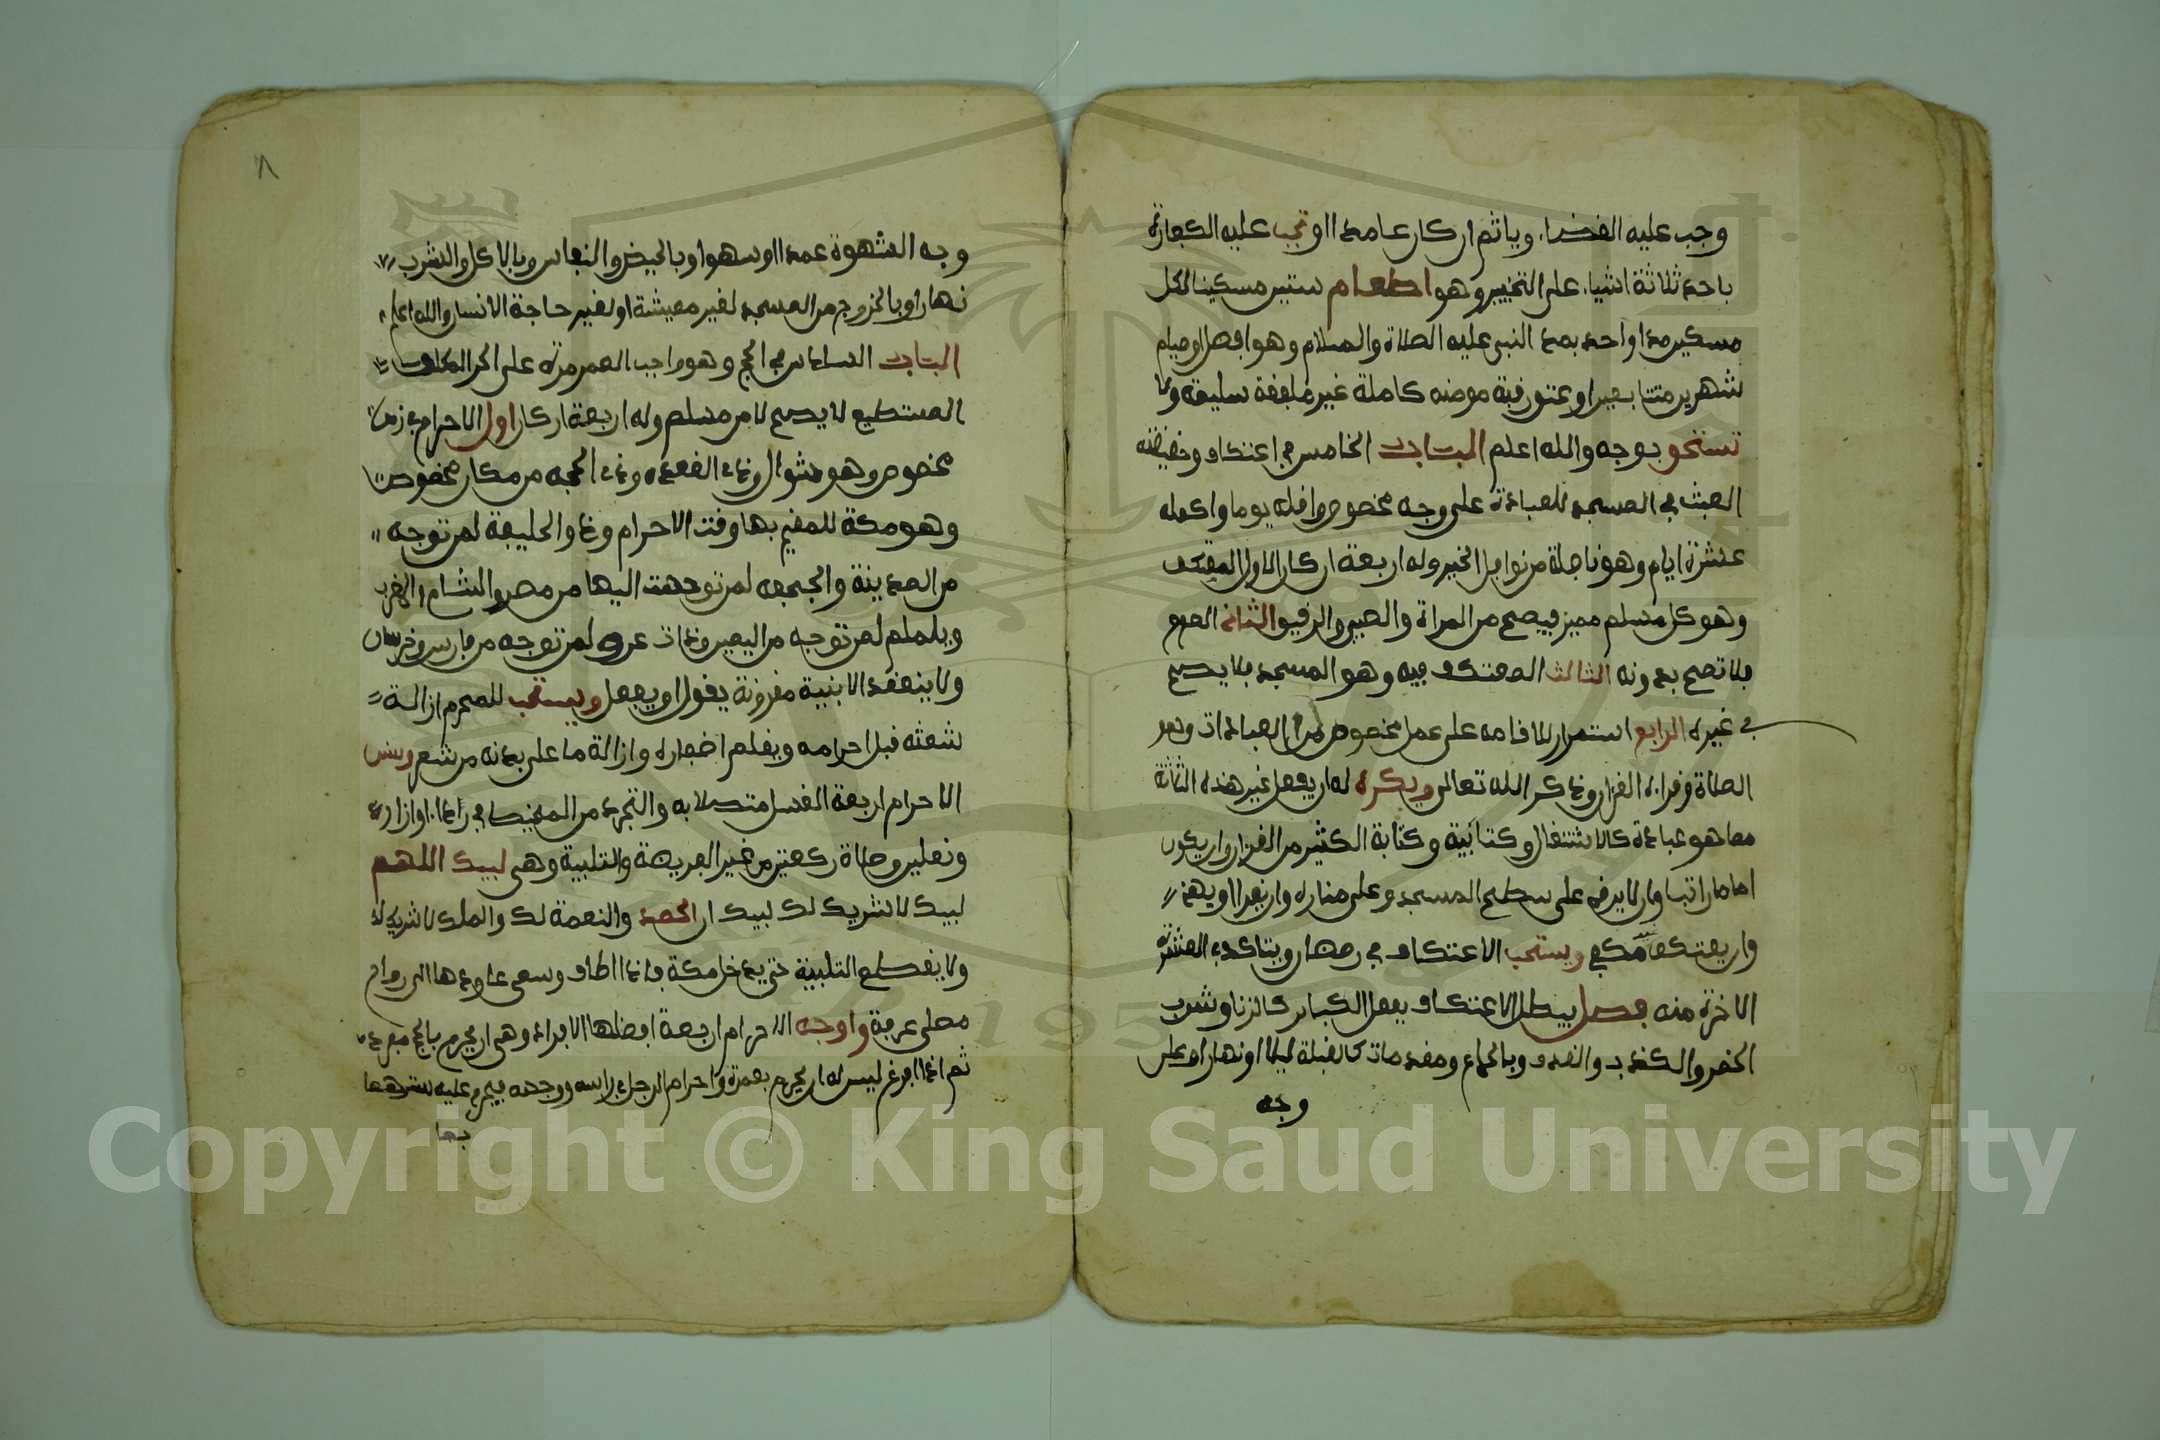 وجب عليه القضاء وياثم ان كان عامدا او تجب عليه الكفارة
باحد ثلاثة اشياء على التخيير وهو اطعام ستين مسكينا لكل
مسكين مدا واحد بمد النبي عليه الصلاة والسلام وهو افضل او صيام
شهرين متتابعين او عتق رقبة مومنه كاملة غير ملفقة سليمه ولا
تستحق بوجه والله اعلم الباب الخامس في اعتكاف وحقيقته
المبث في المسجد للعبادة على وجه مخصوص واقله يوما واكمله
عشرة ايام وهو نافلة من نوافل الخير وله اربعة اركان الاول المعتكف
وهو كل مسلم مميز فيصح من المراة والصبي والرقيق الثاني الصوم
فلا تصح بدونه الثالث المعتكف فيه وهو المسجد فلا يصح
في غيره الرابع استمرار الاقامه على عمل مخصوص من العبادات وهو
الصلاة وقراءة القرءان وذكر الله تعالى ويكره له ان يفعل غير هذه الثلاثة
مما هو عبادة كالاشتغال وكتابية وكتابة الكثير من القرءان وان يكون
اماما راتبا وان لا يرقى على سطح المسجد وعلى مناره وان يقرا او يهذ
وان يعتكف مكفي ويستحب الاعتكاف في رمضان ويتاكد في العشرة
الاخرة منه فصل يبطل الاعتكاف بفعل الكبائر كالزنا وشرب
الخمر والكذب والقذف وبالجماع ومقدمات كالقبلة ليلا او نهارا على
وجه
٨
وجه الشهوة عمدا او سهوا وبالحيض والنفاس وبالاكل والشرب
نهارا وبالخروج من المسجد لغير معيشة او لغير حاجة الانسان والله اعلم
الباب السادس في الحج وهو واجب العمر مرة على الحر المكلف
المستطيع لا يصح الا من مسلم وله اربعة اركان اول الاحرام في زمن
مخصوص وهو شوال وذي القعده وذي الحجه من مكان مخصوص
وهو مكة للمقيم بها وقت الاحرام وذو الحليفة لمن توجه
من المدينة والجحفه لمن توجهت اليها من مصر والشام والمغرب
ويلملم لمن توجه من اليمن وذات عرق لمن توجه من فارس وخرسان
ولا ينعقد الا بنية مقرونة بقول او بفعل ويستحب للمحرم ازالة
شعثه قبل احرامه ويقلم اظفاره وازالة ما على بدنه من شعر وسنن
الاحرام اربعة الغسل متصلا به والتجرد من المخيط في رداء او ازار
ونعلين وصلاة ركعتين من غير الفريضة والتلبية وهي لبيك اللهم
لبيك لا شريك لك لبيك ان الحمد والنعمة لك والملك لا شريك لك
ولا يقطع التلبية حتى يدخل مكة فاذا طاف وسعى عاودها الى رواح
مصلى عرفة واوجه الاحرام اربعة افضلها الافراد وهي ان يحرم بالحج مفردا
ثم اذا فرغ ليس له ان يحرم بعمرة واحرام الرجل في راسه ووجهه فيحرم عليه سترهما
بما
Copyright © King Saud University